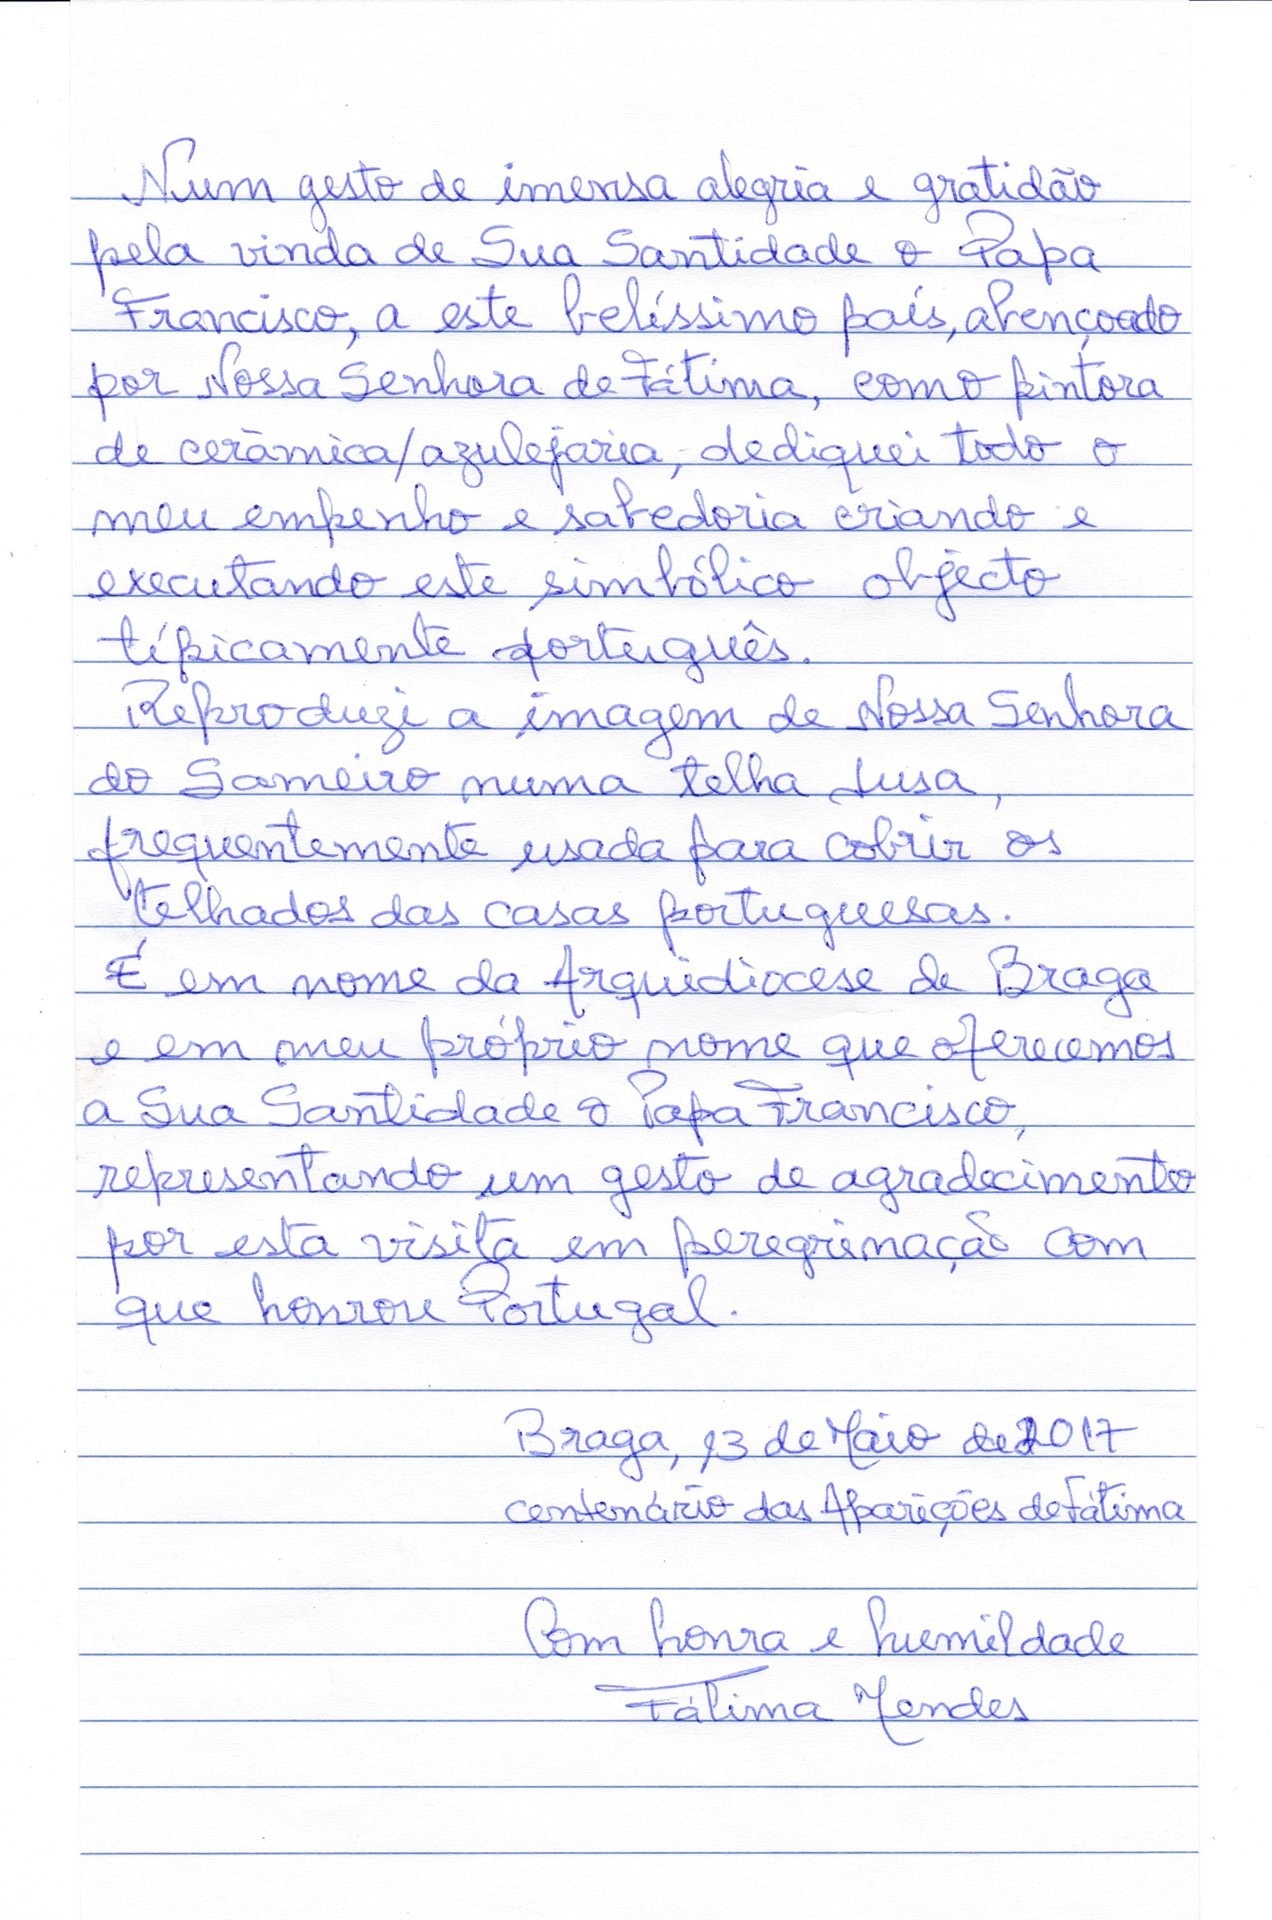 Num gesto de imensa alegria e gratidão
pela vinda de Sua Santidade o Papa
Francisco, a este belíssimo país, abençoado
por Nossa Senhora de Fátima, como pintora
de cerâmica/azulejaria, dediquei todo o
meu empenho e sabedoria criando e
executando este simbólico objecto
típicamente português.
Reproduzi a imagem de Nossa Senhora
do Sameiro numa telha Lusa,
frequentemente usada para cobrir os
telhados das casas portuguesas.
É em nome da Arquidiocese de Braga
e em meu próprio nome que oferecemos
a Sua Santidade o Papa Francisco,
representando um gesto de agradecimento
por esta visita em peregrinação com
que honrou Portugal.
Braga, 13 de Maio de 2017
centenário das Aparições de Fátima
Com honra e humildade
Fátima Mendes